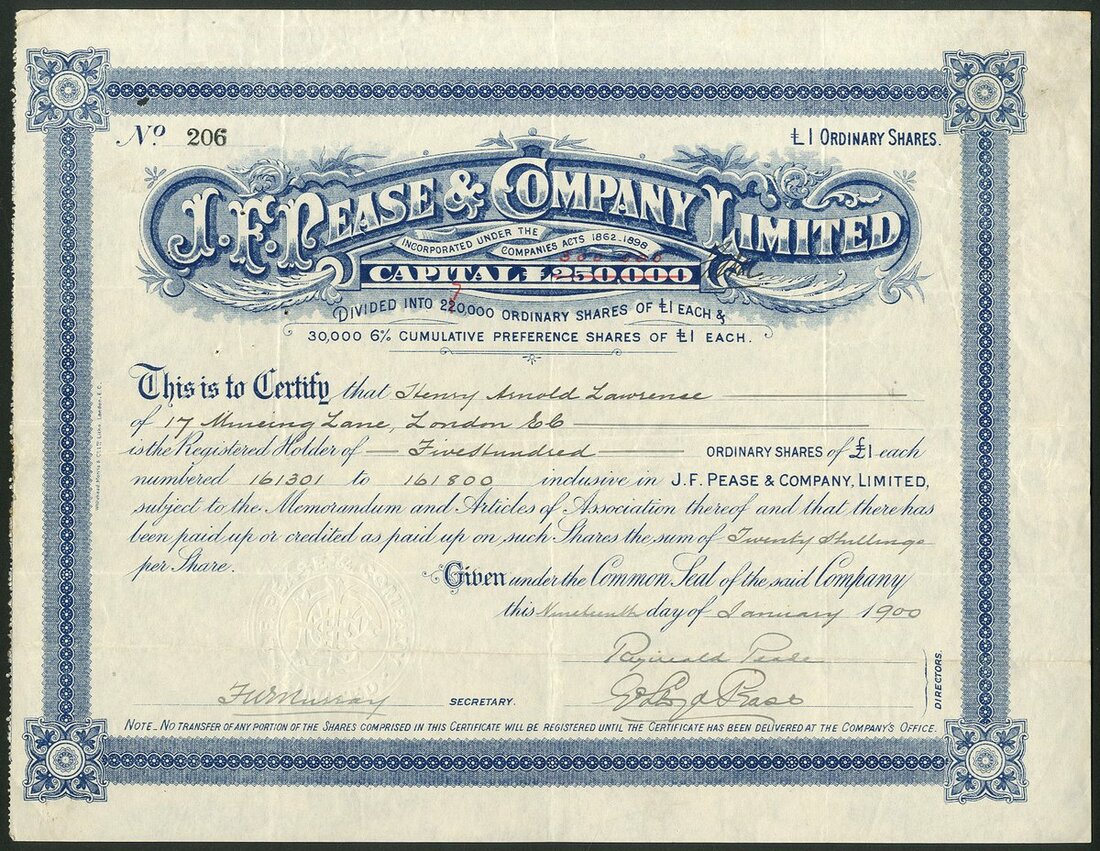 Nº 206
£1 ORDINARY SHARES.
J. F. PEASE & COMPANY LIMITED
INCORPORATED UNDER THE COMPANIES ACTS 1862-1898
300,000
CAPITAL £250,000
DIVIDED INTO 220,000 ORDINARY SHARES OF £1 EACH &
7
30,000 6% CUMULATIVE PREFERENCE SHARES OF £1 EACH.
This is to Certify that Henry Arnold Lawrence
of 17 Mincing Lane, London EC
is the Registered Holder of Five Hundred ORDINARY SHARES of £1 each
numbered 161301 to 161800 inclusive in J. F. PEASE & COMPANY, LIMITED,
subject to the Memorandum and Articles of Association thereof and that there has
been paid up or credited as paid up on such Shares the sum of Twenty Shillings
per Share.
Given under the Common Seal of the said Company
this Nineteenth day of January 1900
Reginald Pease
DIRECTORS.
F W Murray SECRETARY.
Pease
NOTE_ NO TRANSFER OF ANY PORTION OF THE SHARES COMPRISED IN THIS CERTIFICATE WILL BE REGISTERED UNTIL THE CERTIFICATE HAS BEEN DELIVERED AT THE COMPANY'S OFFICE.